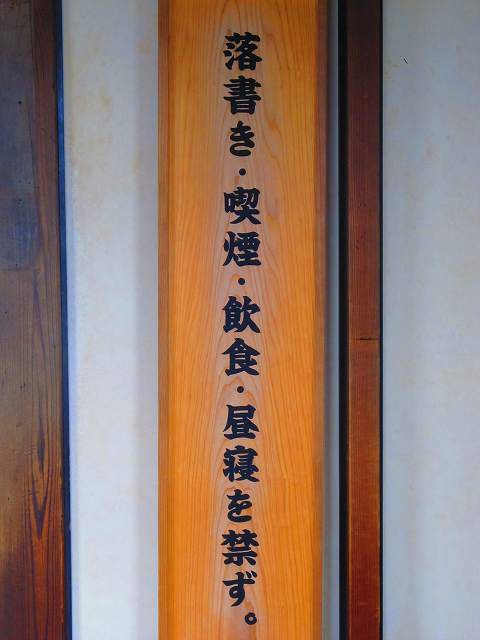 落書き・喫煙・飲食・昼寝を禁ず。